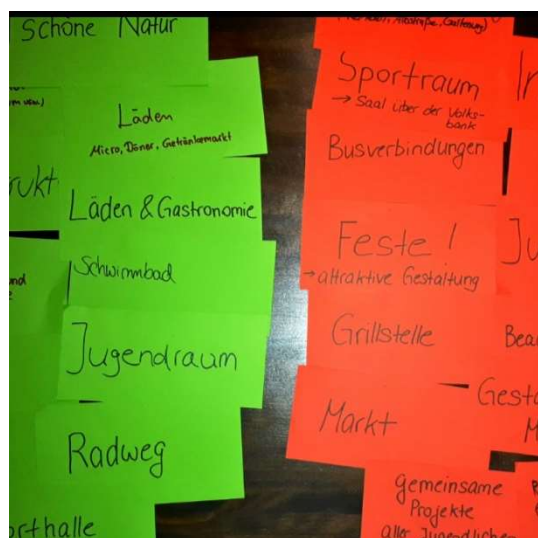 Schöne Natur
Läden
Micro, Döner, Getränkemarkt
Läden & Gastronomie
Schwimmbad
Jugendraum
Radweg
Sportraum
→ Saal über der Volks-
bank
Busverbindungen
Feste!
→ attraktive Gestaltung
Grillstelle
Markt
gemeinsame
Projekte
aller Jugendlichen